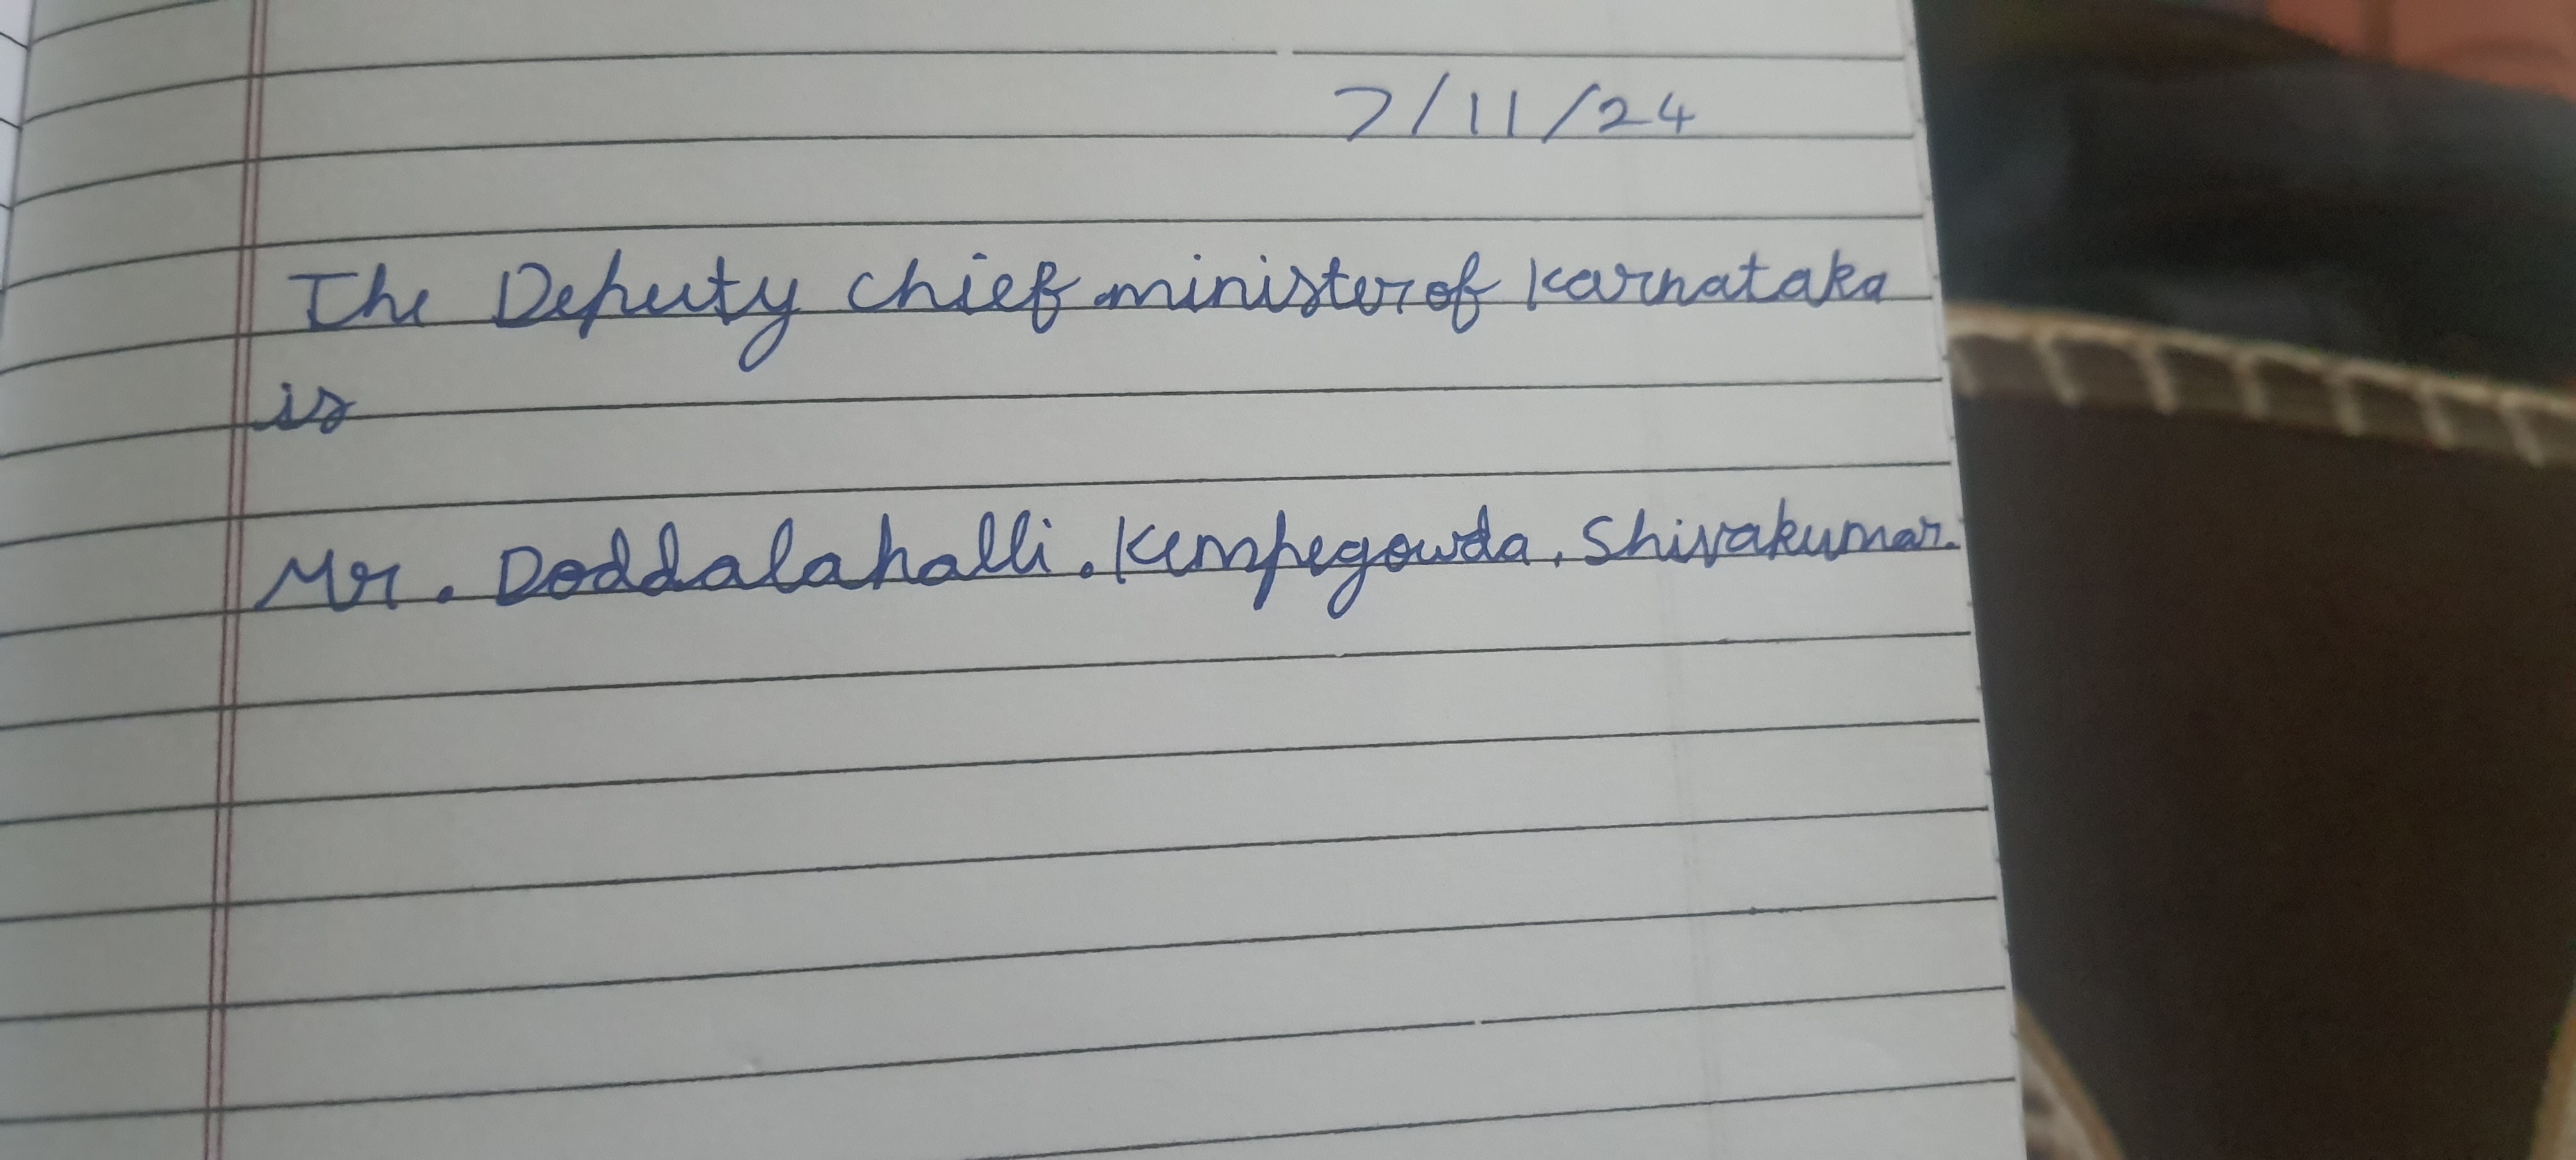 7/11/24
The Deputy Chief minister of Karnataka
is
Mr. Doddalahalli. Kempegowda. Shivakumar.